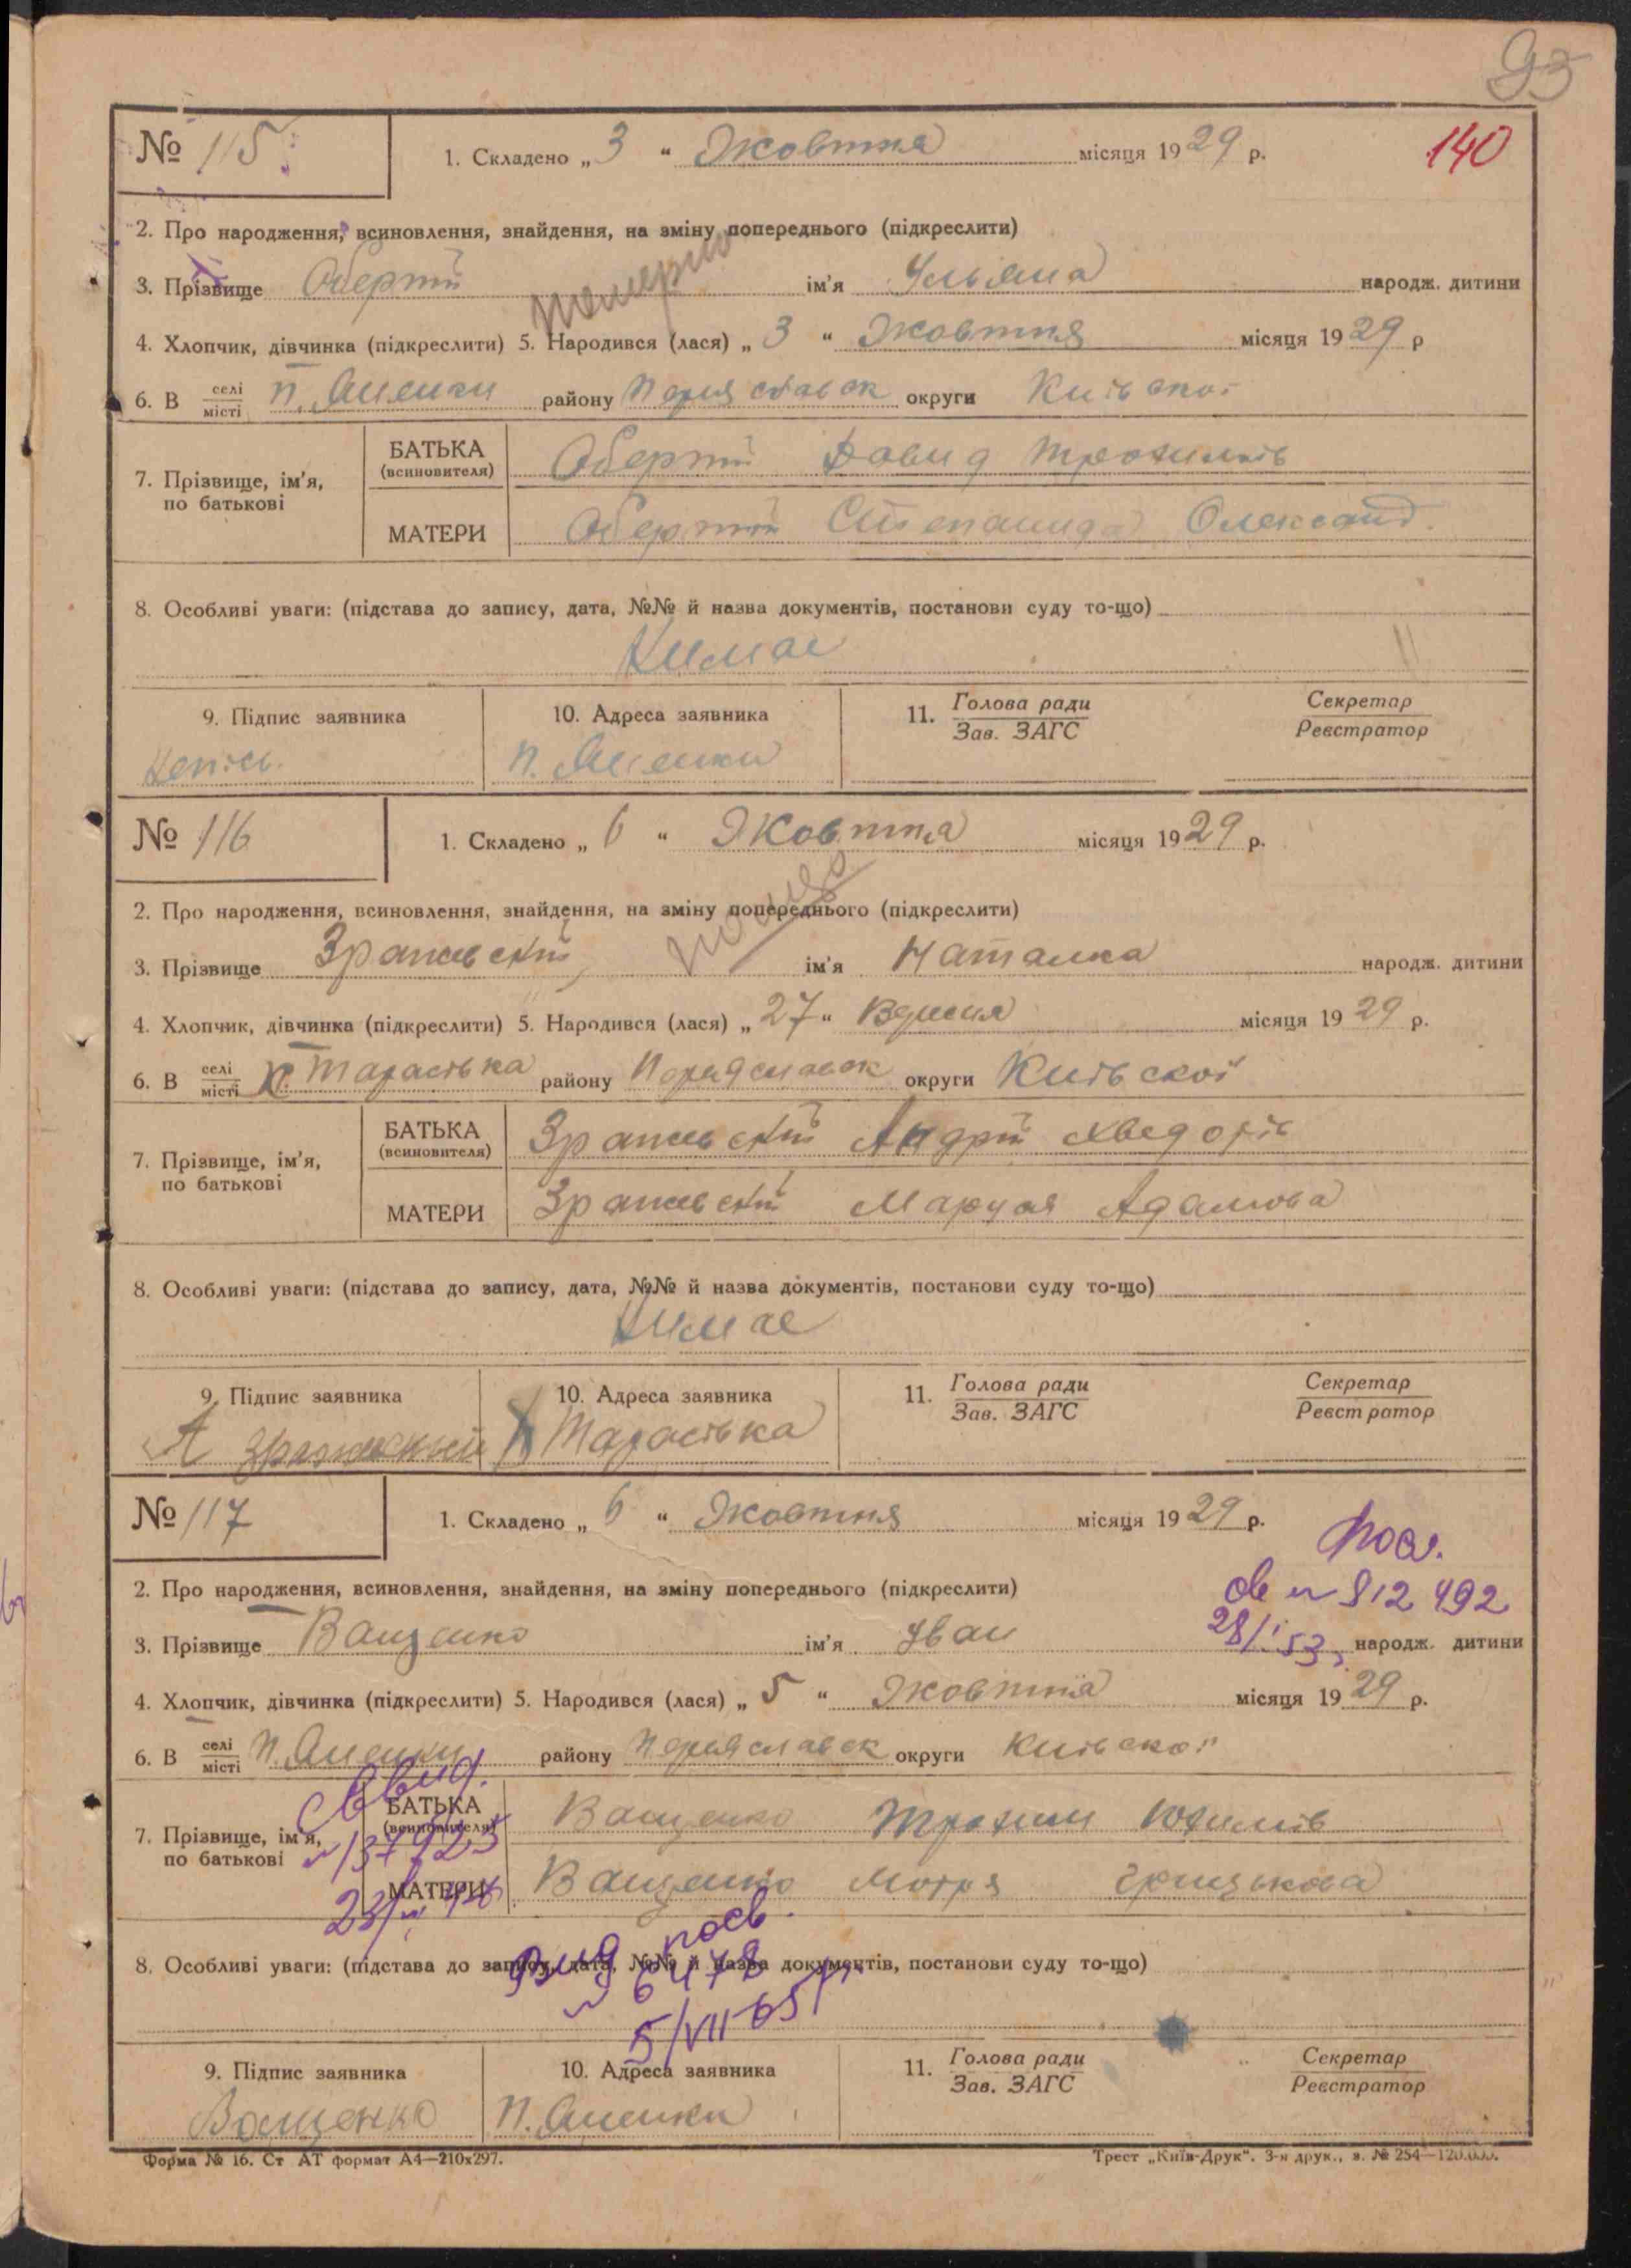 93
№ 115
1. Складено „ 3 “ Жовтня місяця 1929 р.
140
2. Про народження, всиновлення, знайдення, на зміну попереднього (підкреслити)
3. Прізвище Обертій ім'я Ульяна народж. дитини
4. Хлопчик, дівчинка (підкреслити) 5. Народився (лася) „ 3 “ Жовтня місяця 1929 р
6. В селі місті району округи Київської
7. Прізвище, ім'я, по батькові
БАТЬКА (всиновителя) Обертій Давид Трохимів
МАТЕРИ Обертій Степанида Олександ.
8. Особливі уваги: (підстава до запису, дата, №№ й назва документів, постанови суду то-що)
Нимає
9. Підпис заявника
10. Адреса заявника
11. Голова ради Зав. ЗАГС
Секретар Реєстратор
№ 116
1. Складено „ 6 “ Жовтня місяця 1929 р.
2. Про народження, всиновлення, знайдення, на зміну попереднього (підкреслити)
3. Прізвище ім'я Наталка народж. дитини
4. Хлопчик, дівчинка (підкреслити) 5. Народився (лася) „ 27 “ Вересня місяця 1929 р.
6. В селі місті х. Тарасівка району округи Київської
7. Прізвище, ім'я, по батькові
БАТЬКА (всиновителя) Андрій Хведорів
МАТЕРИ Маруся Адамова
8. Особливі уваги: (підстава до запису, дата, №№ й назва документів, постанови суду то-що)
Нимає
9. Підпис заявника
10. Адреса заявника
11. Голова ради Зав. ЗАГС
Секретар Реєстратор
А
х Тарасівка
№ 117
1. Складено „ 6 “ Жовтня місяця 1929 р.
2. Про народження, всиновлення, знайдення, на зміну попереднього (підкреслити)
св № 812 492
28/I 53
3. Прізвище Ващенко ім'я Іван народж. дитини
4. Хлопчик, дівчинка (підкреслити) 5. Народився (лася) „ 5 “ Жовтня місяця 1929 р.
6. В селі місті району округи Київської
7. Прізвище, ім'я, по батькові
БАТЬКА (всиновителя) Ващенко Трохим Юхимів
МАТЕРИ Ващенко Мотря Грицькова
8. Особливі уваги: (підстава до запису, дата, №№ й назва документів, постанови суду то-що)
№ 6478
5/VII 65 р.
9. Підпис заявника
10. Адреса заявника
11. Голова ради Зав. ЗАГС
Секретар Реєстратор
Ващенко
Форма № 16. Ст АТ формат А4—210х297.
Трест „Київ-Друк“. 3-я друк., з. № 254—120.000.